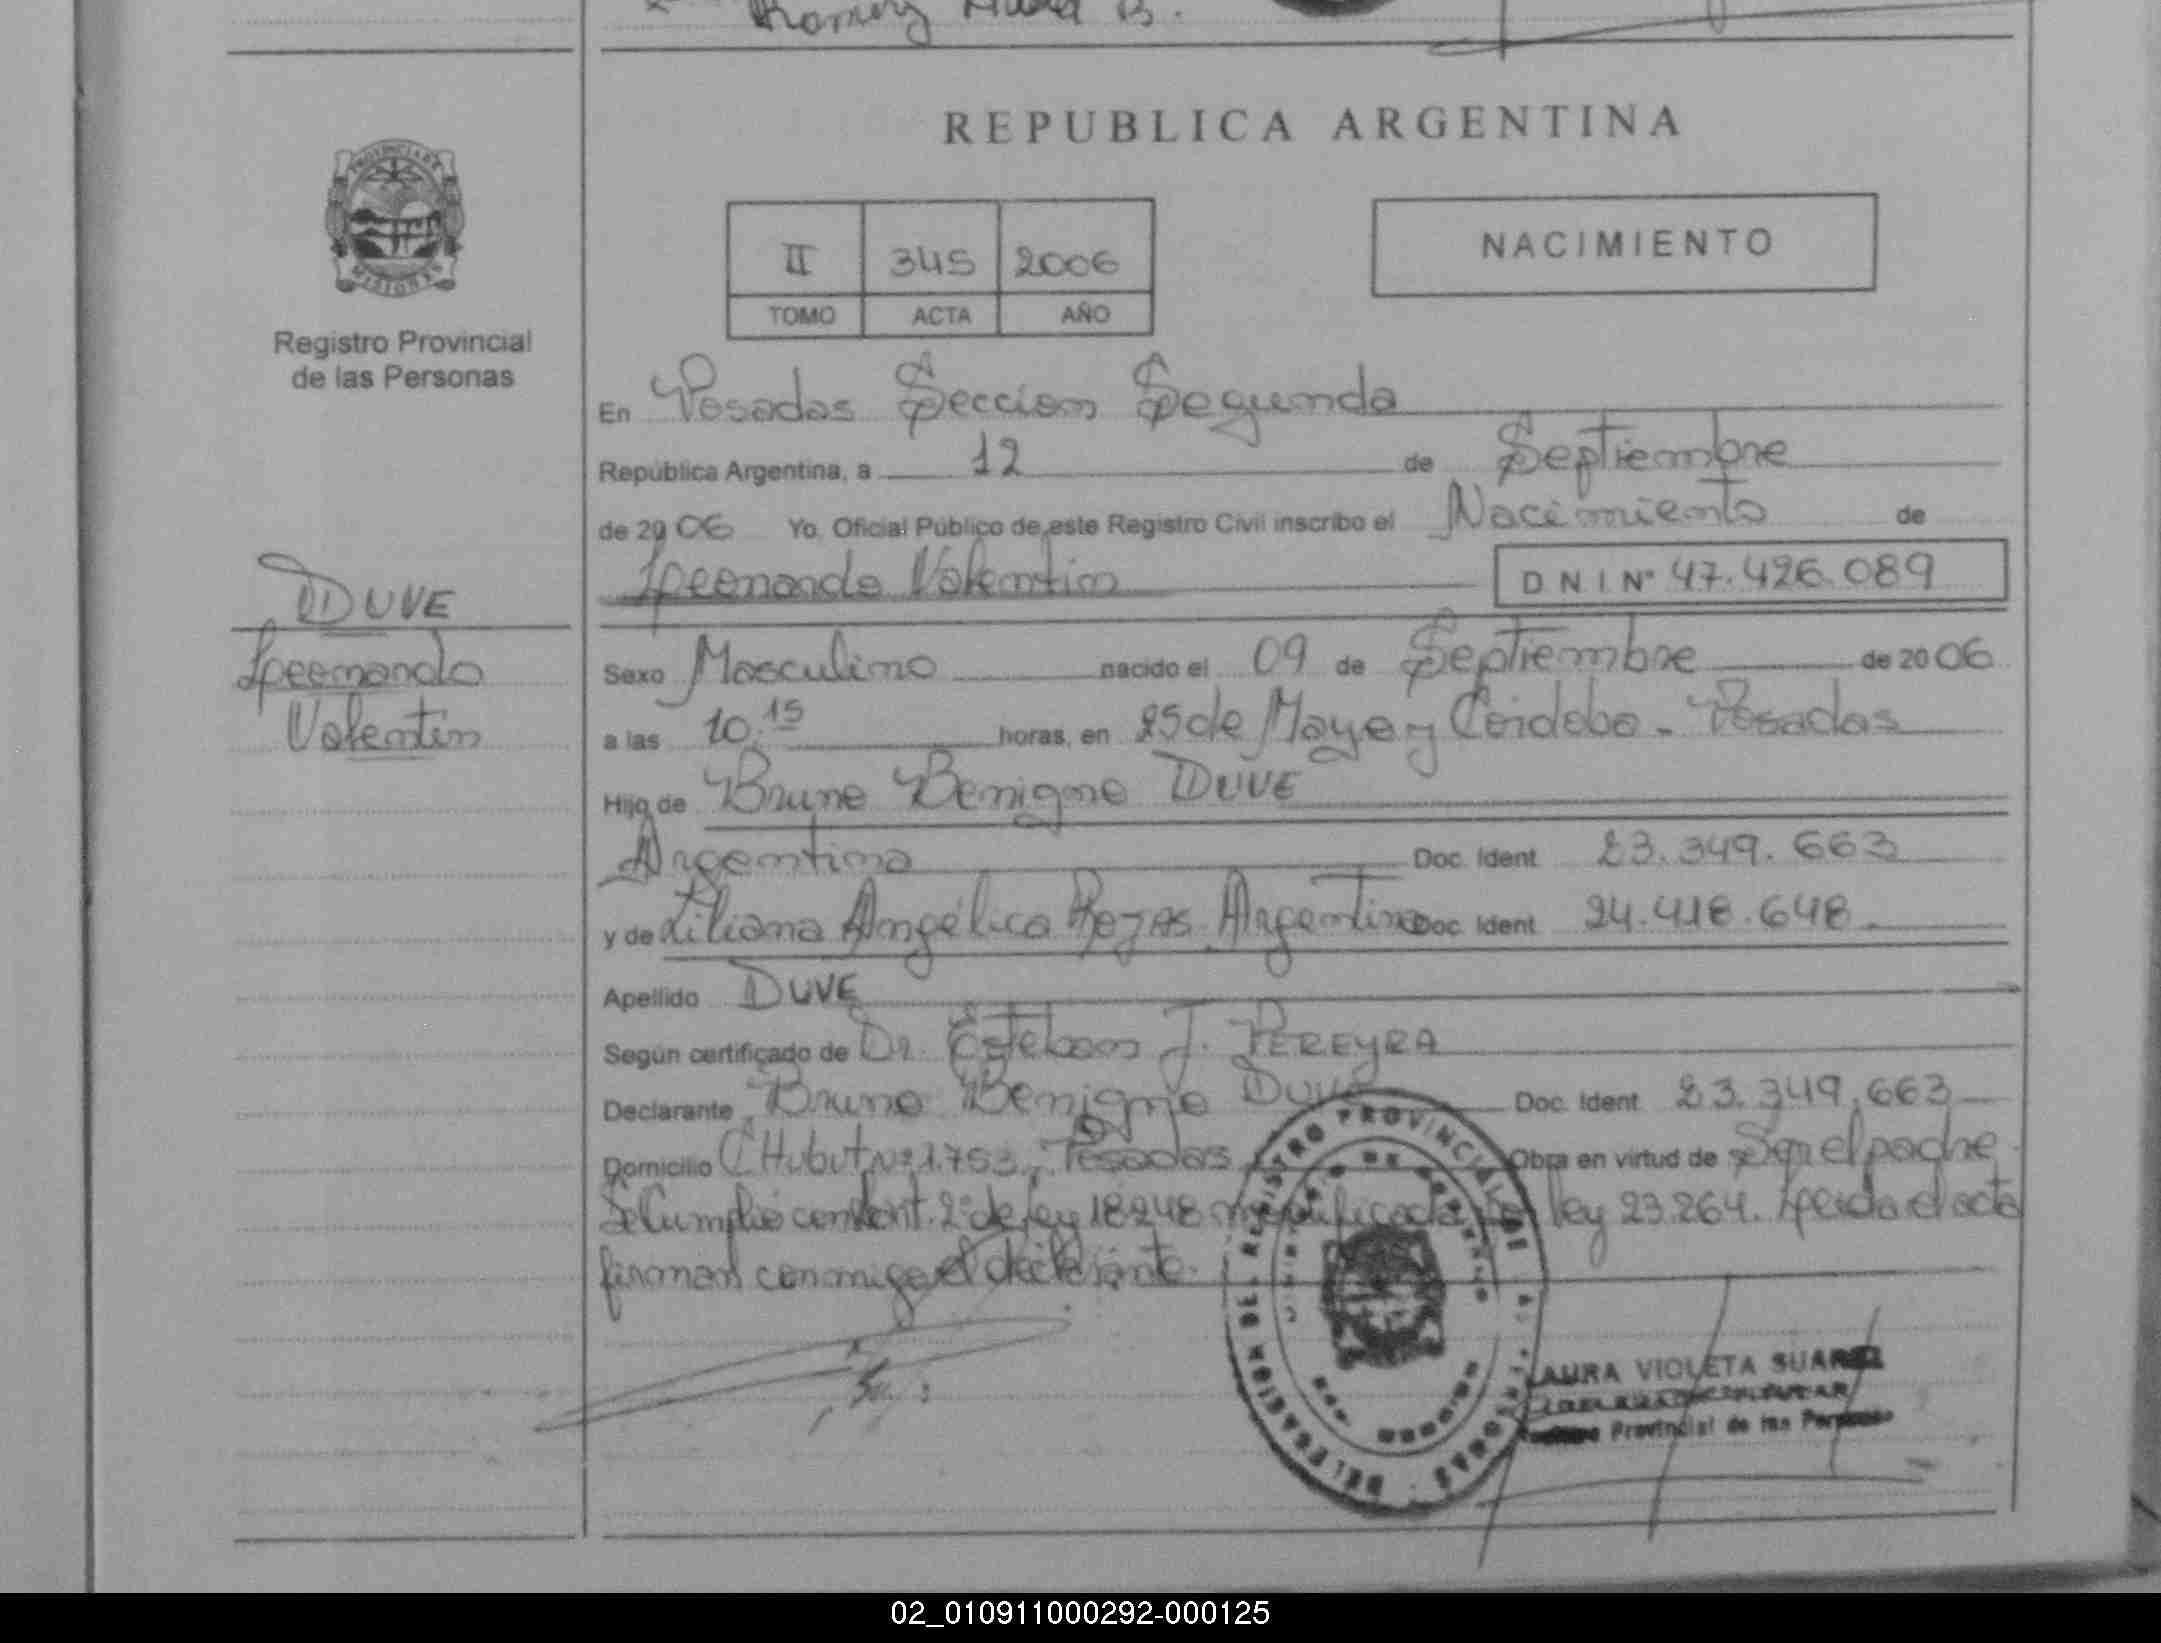 REPUBLICA ARGENTINA
PROVINCIA DE
MISIONES
Registro Provincial
de las Personas
II 345 2006
TOMO ACTA AÑO
NACIMIENTO
En Posadas Seccion Segunda
República Argentina, a 12 de Septiembre
de 2006 Yo, Oficial Público de este Registro Civil inscribo el Nacimiento de
Leonardo Valentin
D N I Nº 47.426.089
DUVE
Leonardo
Valentin
Sexo Masculino nacido el 09 de Septiembre de 2006
a las 10.15 horas, en 25 de Mayo y Cordoba - Posadas
Hijo de Bruno Benigno DUVE
Argentina Doc. Ident 23.349.663
y de Liliana Angélica Rojas Argentina Doc. Ident 24.418.648.
Apellido DUVE
Según certificado de Dr. Esteban J. PEREYRA
Declarante Bruno Benigno Duve Doc. Ident 23.349.663
Domicilio CHubut Nº 1.753, Posadas Obra en virtud de Ser el padre.
Se Cumplió con el art. 2º de ley 18248 modificada por ley 23.264. Leida el acta
firman conmigo el declarante.
DELEGACION DEL REGISTRO PROVINCIAL DE LAS PERSONAS
LAURA VIOLETA SUAREZ
Provincial de las Personas
02_010911000292-000125